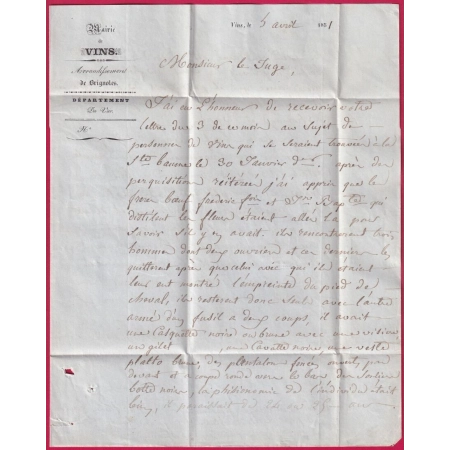 Mairie
de
VINS.
Arrondissement
de Brignoles.
DÉPARTEMENT
Du Var.
N.°
Vins, le 5 avril 1851
Monsieur le Juge,
J'ai eu l'honneur de recevoir votre
lettre du 3 de ce mois au sujet de
personnes de Vins qui se seraient trouvées à la
Ste baume le 30 Janvier dr. après des
perquisitions réitérées j'ai appris que le
et
distillent la fleur étaient allés là pour
savoir s'il y en avait. ils rencontrèrent trois
hommes dont deux ouvriers et ces derniers les
quittèrent après que celui avec qui ils étaient
leur eut montré l'empreinte du pied de
cheval, ils restèrent donc seuls avec l'autre
armé d'un fusil à deux coups, il avait
une Casquette noire ou brune avec une visière,
un gilet une Cravatte noire, une veste
brune, des pantalons foncés ouverts par
devant et
botte noire, la phisionomie de l'individu était
il paraissait de